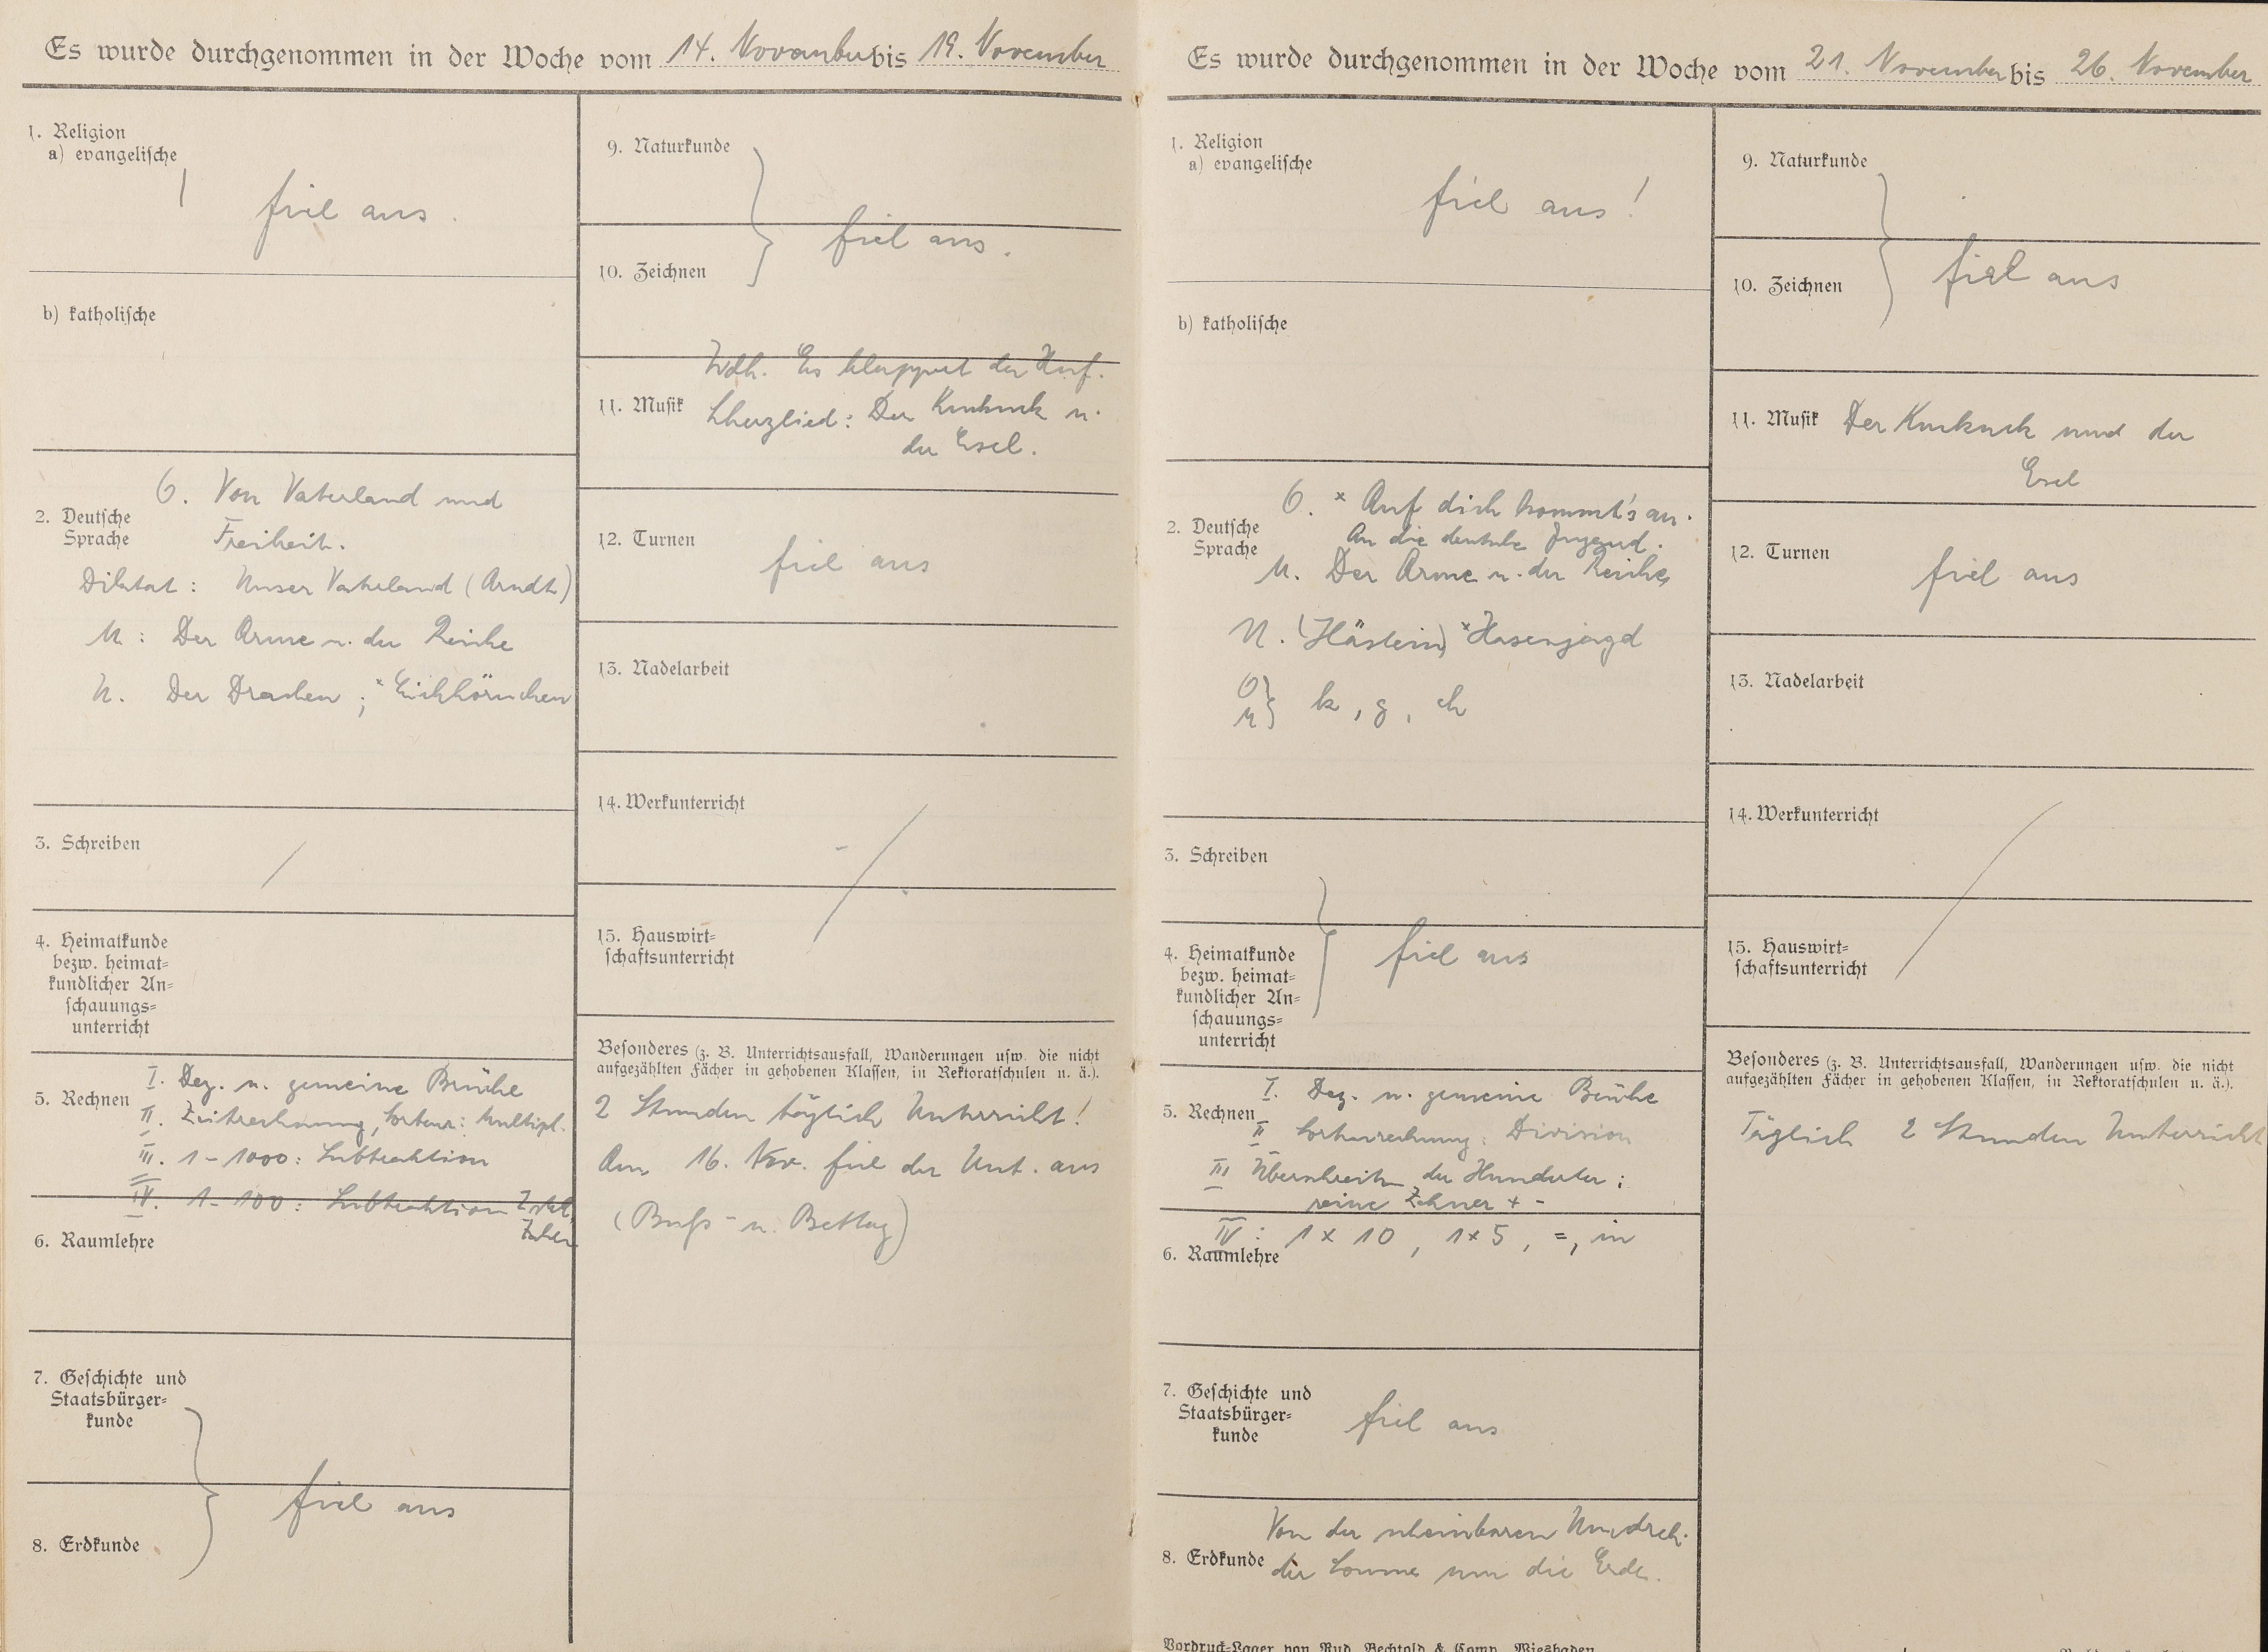 Es wurde durchgenommen in der Woche vom 14. November bis 19. November
1. Religion
a) evangelische
fiel aus.
b) katholische
2. Deutsche
Sprache
O. Von Vaterland und
Freiheit.
Diktat: Unser Vaterland (Arndt)
M: Der Arme u. der Reiche
U. Der Drachen; * Eichhörnchen
3. Schreiben
4. Heimatkunde
bezw. heimat=
kundlicher An=
schauungs=
unterricht
5. Rechnen
I. Dez. u. gemeine Brüche
II. Zeitrechnung, Sorten: Multipl.
III. 1-1000: Subtraktion
IV. 1-100: Subtraktion
6. Raumlehre
7. Geschichte und
Staatsbürger=
kunde
8. Erdkunde
fiel aus
9. Naturkunde
10. Zeichnen
fiel aus.
11. Musik
Wdh. Es klappert der Huf.
Scherzlied: Der Kuckuck u.
der Esel.
12. Turnen
fiel aus
13. Nadelarbeit
14. Werkunterricht
15. Hauswirt=
schaftsunterricht
Besonderes (z. B. Unterrichtsausfall, Wanderungen usw. die nicht
aufgezählten Fächer in gehobenen Klassen, in Rektoratschulen u. ä.).
2 Stunden täglich Unterricht!
Am 16. Nov. fiel der Unt. aus
(Buß- u. Bettag)
Es wurde durchgenommen in der Woche vom 21. November bis 26. November
1. Religion
a) evangelische
fiel aus!
b) katholische
2. Deutsche
Sprache
O. * Auf dich kommt's an.
An die deutsche Jugend.
M. Der Arme u. der Reiche
U. (Häslein) * Hasenjagd
O
M } k, g, ch
3. Schreiben
4. Heimatkunde
bezw. heimat=
kundlicher An=
schauungs=
unterricht
fiel aus
5. Rechnen
I. Dez. u. gemeine Brüche
II Sortenrechnung: Division
III Überschreiten der Hunderter;
reine Zehner + -
IV: 1 x 10, 1 x 5, =, in
6. Raumlehre
7. Geschichte und
Staatsbürger=
kunde
fiel aus
8. Erdkunde
Von der scheinbaren Umdreh.
der Sonne um die Erde.
Vordruck-Lager von Rud. Bechtold & Comp. Wiesbaden
9. Naturkunde
10. Zeichnen
fiel aus
11. Musik
Der Kuckuck und der
Esel
12. Turnen
fiel aus
13. Nadelarbeit
14. Werkunterricht
15. Hauswirt=
schaftsunterricht
Besonderes (z. B. Unterrichtsausfall, Wanderungen usw. die nicht
aufgezählten Fächer in gehobenen Klassen, in Rektoratschulen u. ä.).
Täglich 2 Stunden Unterricht